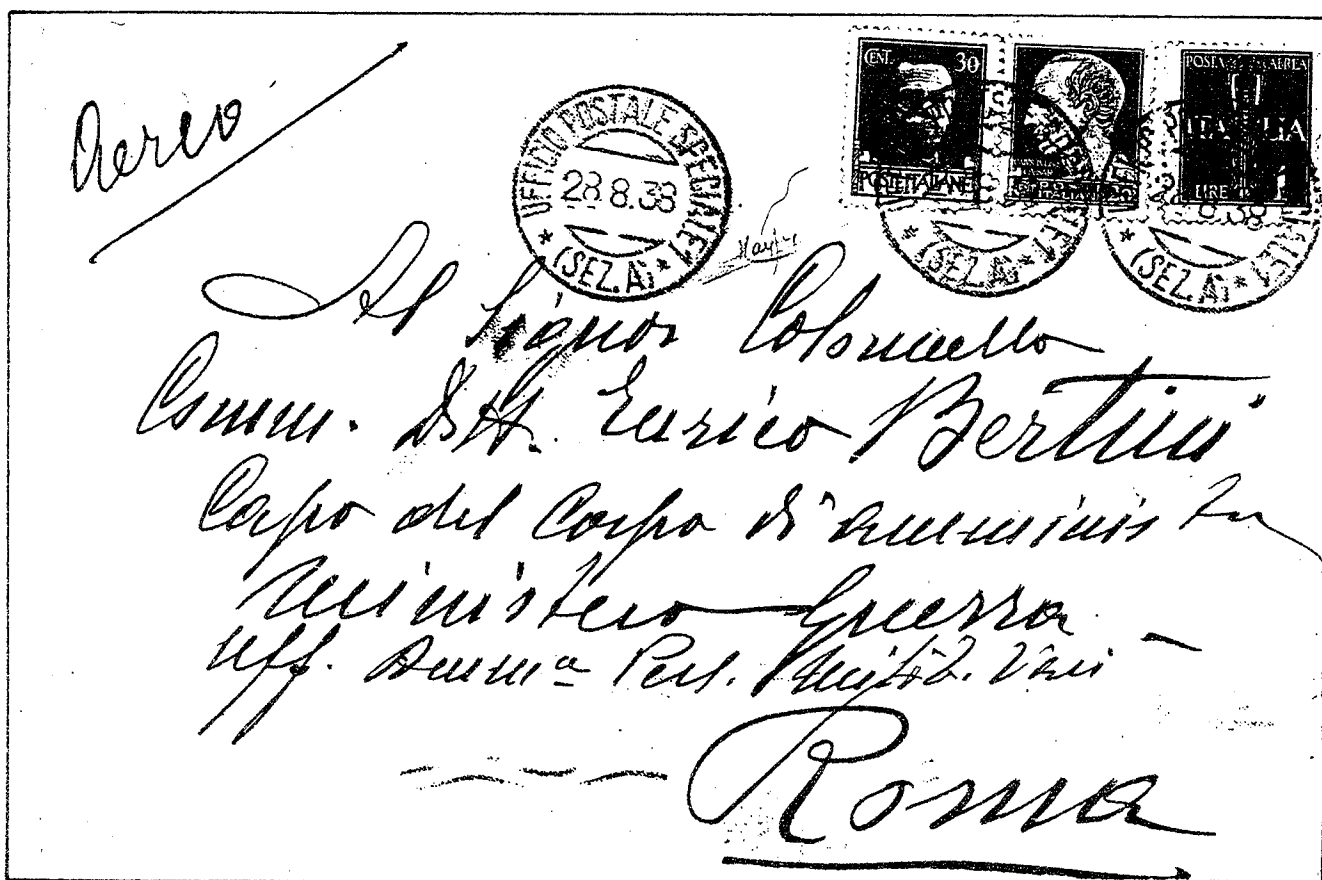 Aereo
UFFICIO POSTALE SPECIALE 1
28.8.38
* (SEZ. A) *
CENT. 30
POSTE ITALIANE
POSTA AEREA
ITALIA
LIRE 1
8.38
* (SEZ. A) *
* (SEZ. A) *
Al Signor Colonnello
Comm. Dott. Enrico Bertini
Capo del Corpo di amministr
Ministero Guerra
Uff. Ammna Pers. Milit. Vari
Roma